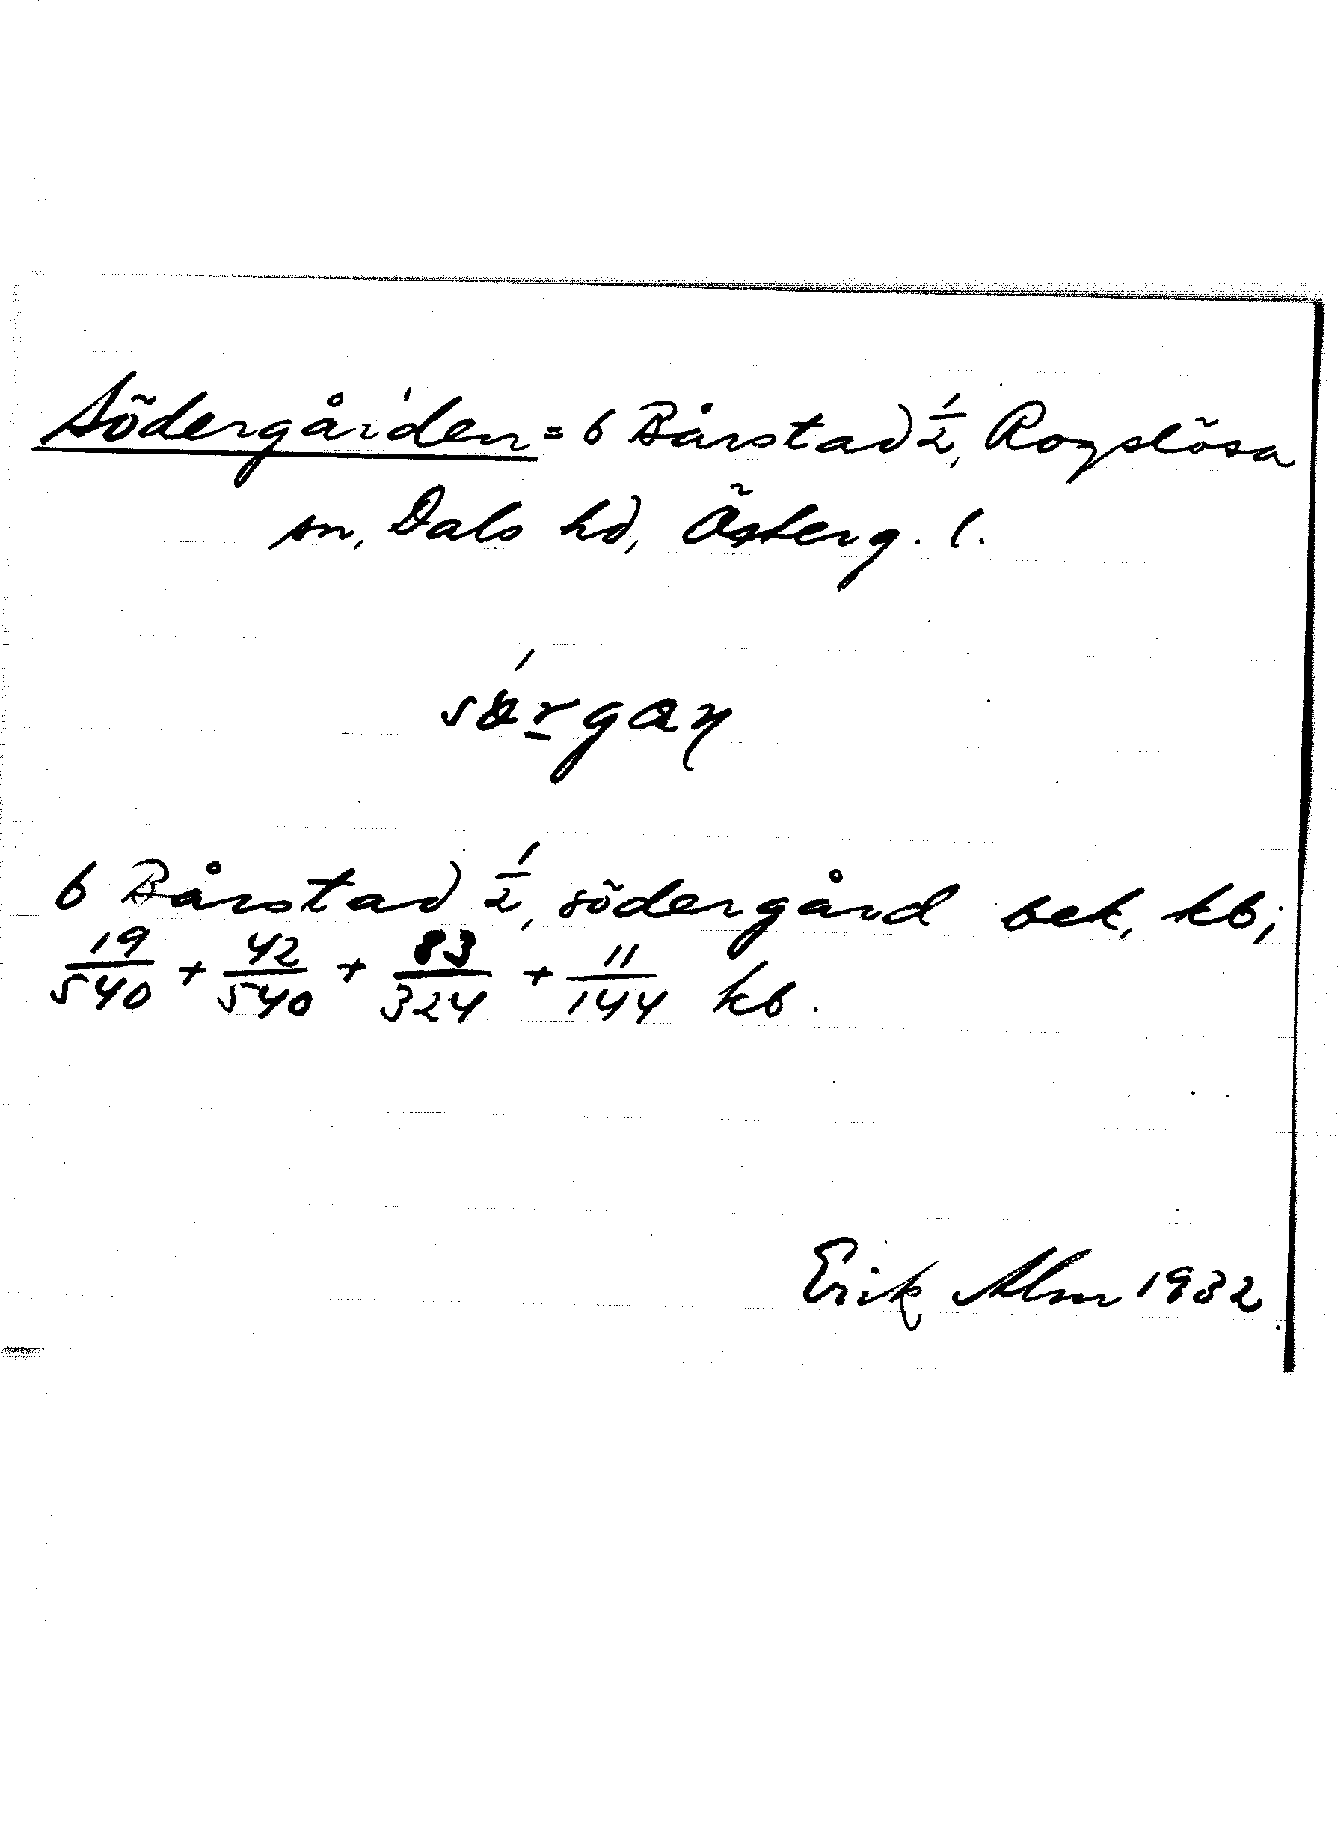 Södergår'den = 6 Bårstad 1/2, Rogslösa
sn, Dals hd, Österg. l.
6 Bårstad 1/2, södergård bet. kb;
19/540 + 42/540 + 83/324 + 11/144 kb.
Erik Alm 1932